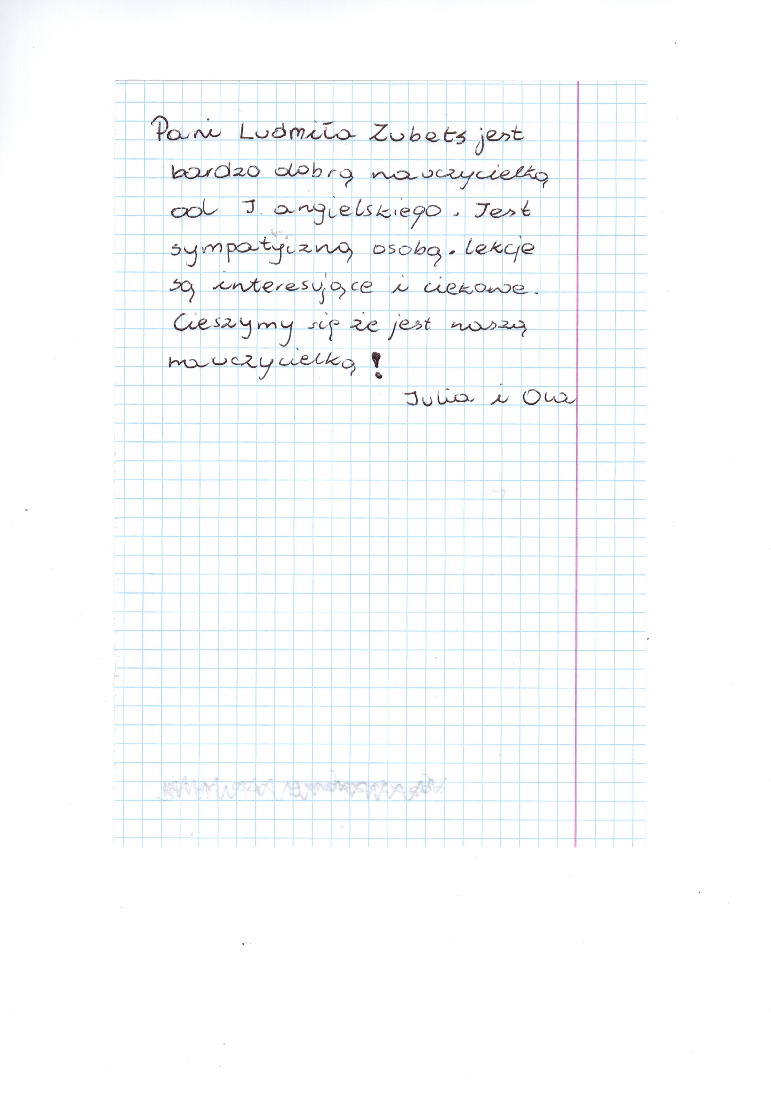 Pani Ludmiła Zubets jest
bardzo dobrą nauczycielką
od J. angielskiego. Jest
sympatyczną osobą. Lekcje
są interesujące i ciekawe.
Cieszymy się że jest naszą
nauczycielką!
Julia i Ola